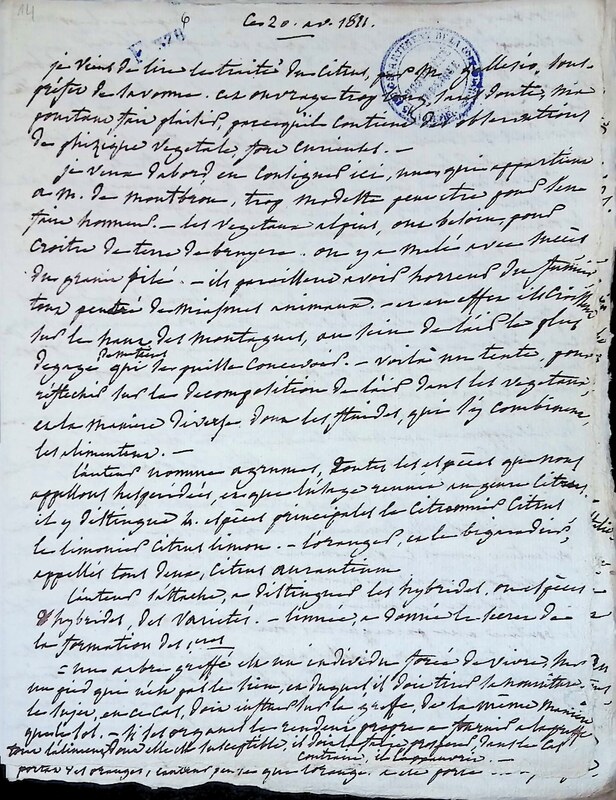 6
Ce 20. av. 1811.
je viens de lire le traité du Citrus, par M. gallesio, sous-
préfet de savonne. cet ouvrage trop long, sans doute, m'a
pourtant fait plaisir, parcequ'il contient des observations
de phisique vegetale, fort curieuses. —
je veux d'abord en consigner ici, une que appartient
a M. de montbron, trop modeste peut etre pour s'en
faire honneur. — les vegetaux alpins, ont besoin, pour
croitre de terre de bruyere. on y a mêlé avec succès
du pilé. — ils avoir horreur du fumier
tout de miasmes animaux. — et en effet ils croissent
sur le haut des montagnes, au sein de l'air le plus
dégagé qui se puisse concevoir. — voilà un texte, pour
réfléchir sur la decomposition de l'air dans les vegetaux,
et la maniere diverse, dont les fluides, qui s'y combinent,
les alimentent. —
l'auteur nomme agrumes, toutes les espèces que nous
appellons hesperidées, et que l'usage reunit au genre Citrus.
il y distingue 4. espèces principales le Citronnier Citrus
le limonier Citrus limon. — l'oranger, et le bigaradier,
appellés tous deux, Citrus aurantium
l'auteur s'attache, a distinguer les hybrides, ou espèces
hybrides, des varietés. — linnée, a donné le secret de
la formation des
= un arbre greffé est un individu forcé de vivre, sur
un pied que n'est pas le sien, et duquel il doit tirer sa nourriture.
le sujet, en ce cas, doit influer sur la greffe, de la même maniere
que le sol. — si ses organes le rendent propre a fournir a la greffe
tout l'aliment dont elle est susceptible, il doit la faire prosperer, dans le cas
contraire, il l'appauvrir. —
porter des oranges, que l'oranger a été porté